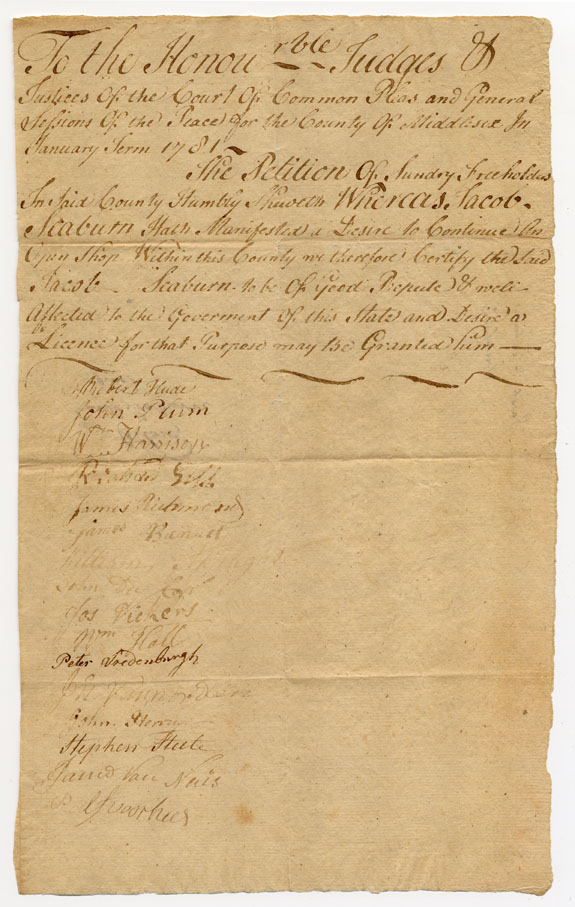 To the Honourble Judges &
Justices Of the Court Of Common Pleas and General
Sessions Of the Peace for the County Of Middlesex In
January Term 1781
The Petition Of Sundry Freeholders
In Said County Humbly Sheweth Whereas, Jacob
Seaburn Hath Manifested a Desire to Continue An
Open Shop Within this County we therefore Certify the Said
Jacob Seaburn to be Of Good Repute & well
Affected to the Goverment Of this State and Desire a
Licence for that Purpose may Be Granted him
Robert Hude
John Pum
Wm Harrison
Richard
James Richmond
James Bennet
William
John
Jos Vickers
Wm Hall
Peter Vredenburgh
John
Stephen
Van Nuis